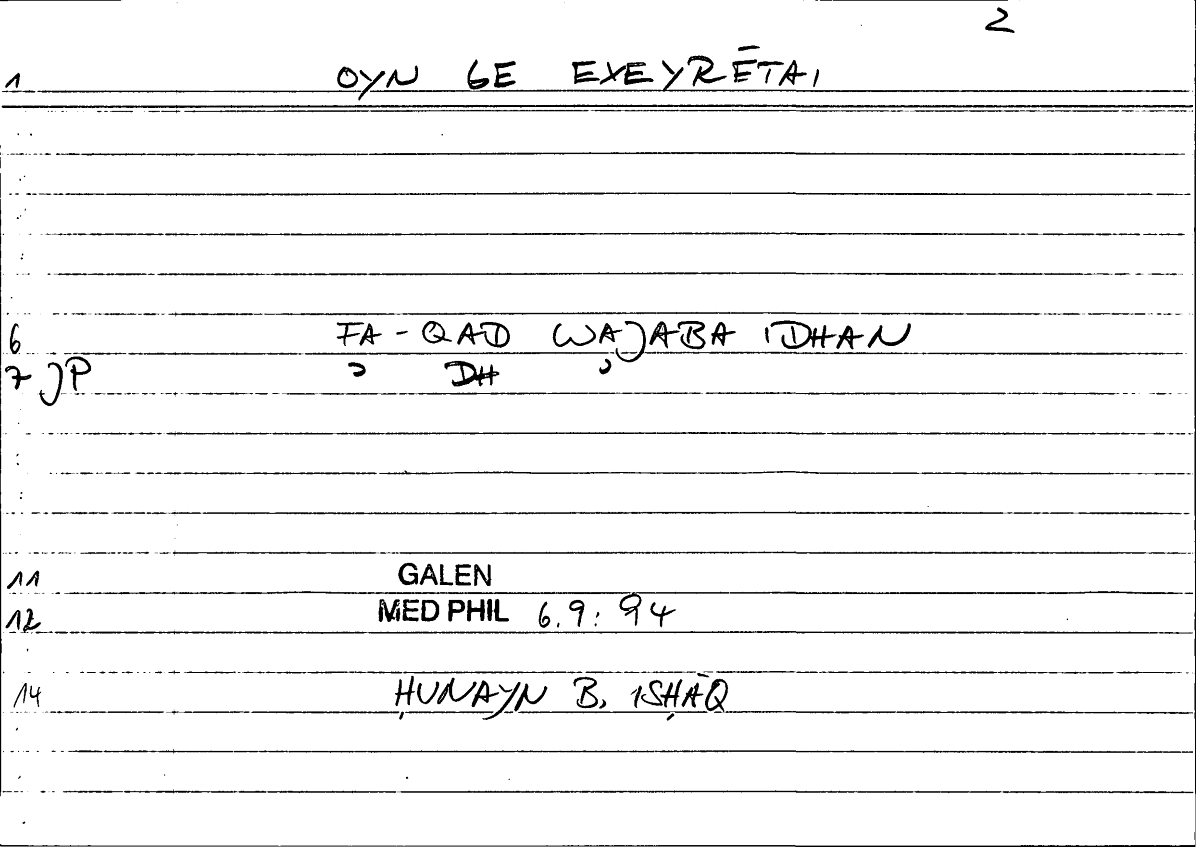 2
1 OYN GE EXEYRĒTAI
6 FA-QAD WAJABA IDHAN
7 JP ʾ DH ʾ
11 GALEN
12 MED PHIL 6.9: 94
14 ḤUNAYN B. ISḤĀQ